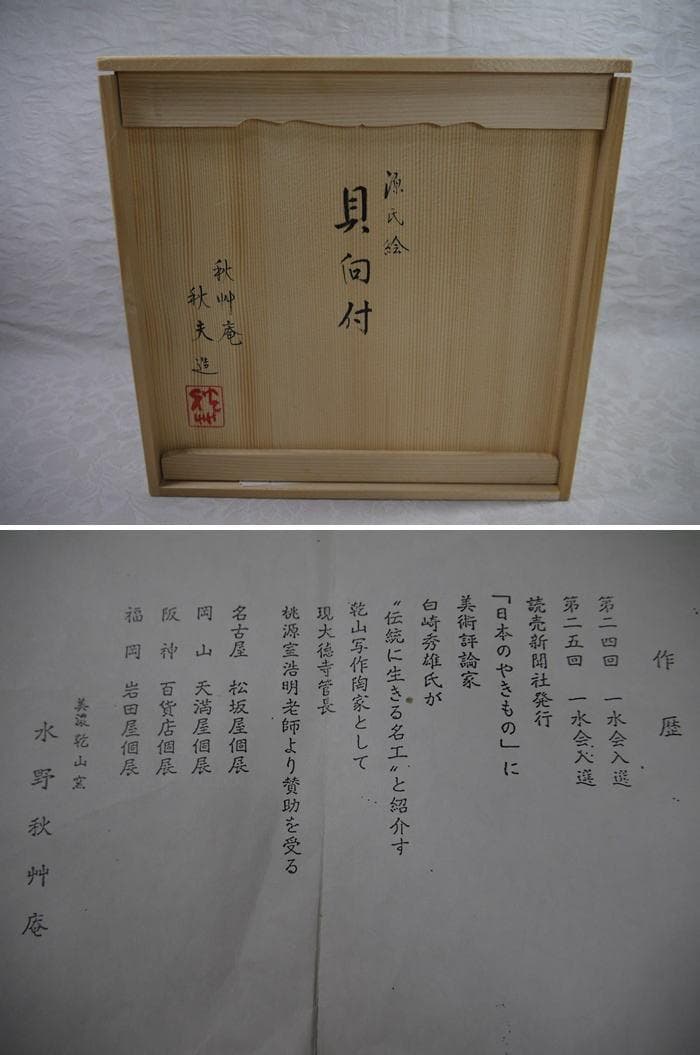 源氏絵
貝向付
秋艸庵
秋夫造
作歴
第二四回 一水会入選
第二五回 一水会入選
読売新聞社発行
「日本のやきもの」に
美術評論家
白崎秀雄氏が
〝伝統に生きる名工〟と紹介す
乾山写作陶家として
現大徳寺管長
桃源室浩明老師より賛助を受る
名古屋 松坂屋個展
岡山 天満屋個展
阪神 百貨店個展
福岡 岩田屋個展
美濃乾山窯
水野秋艸庵